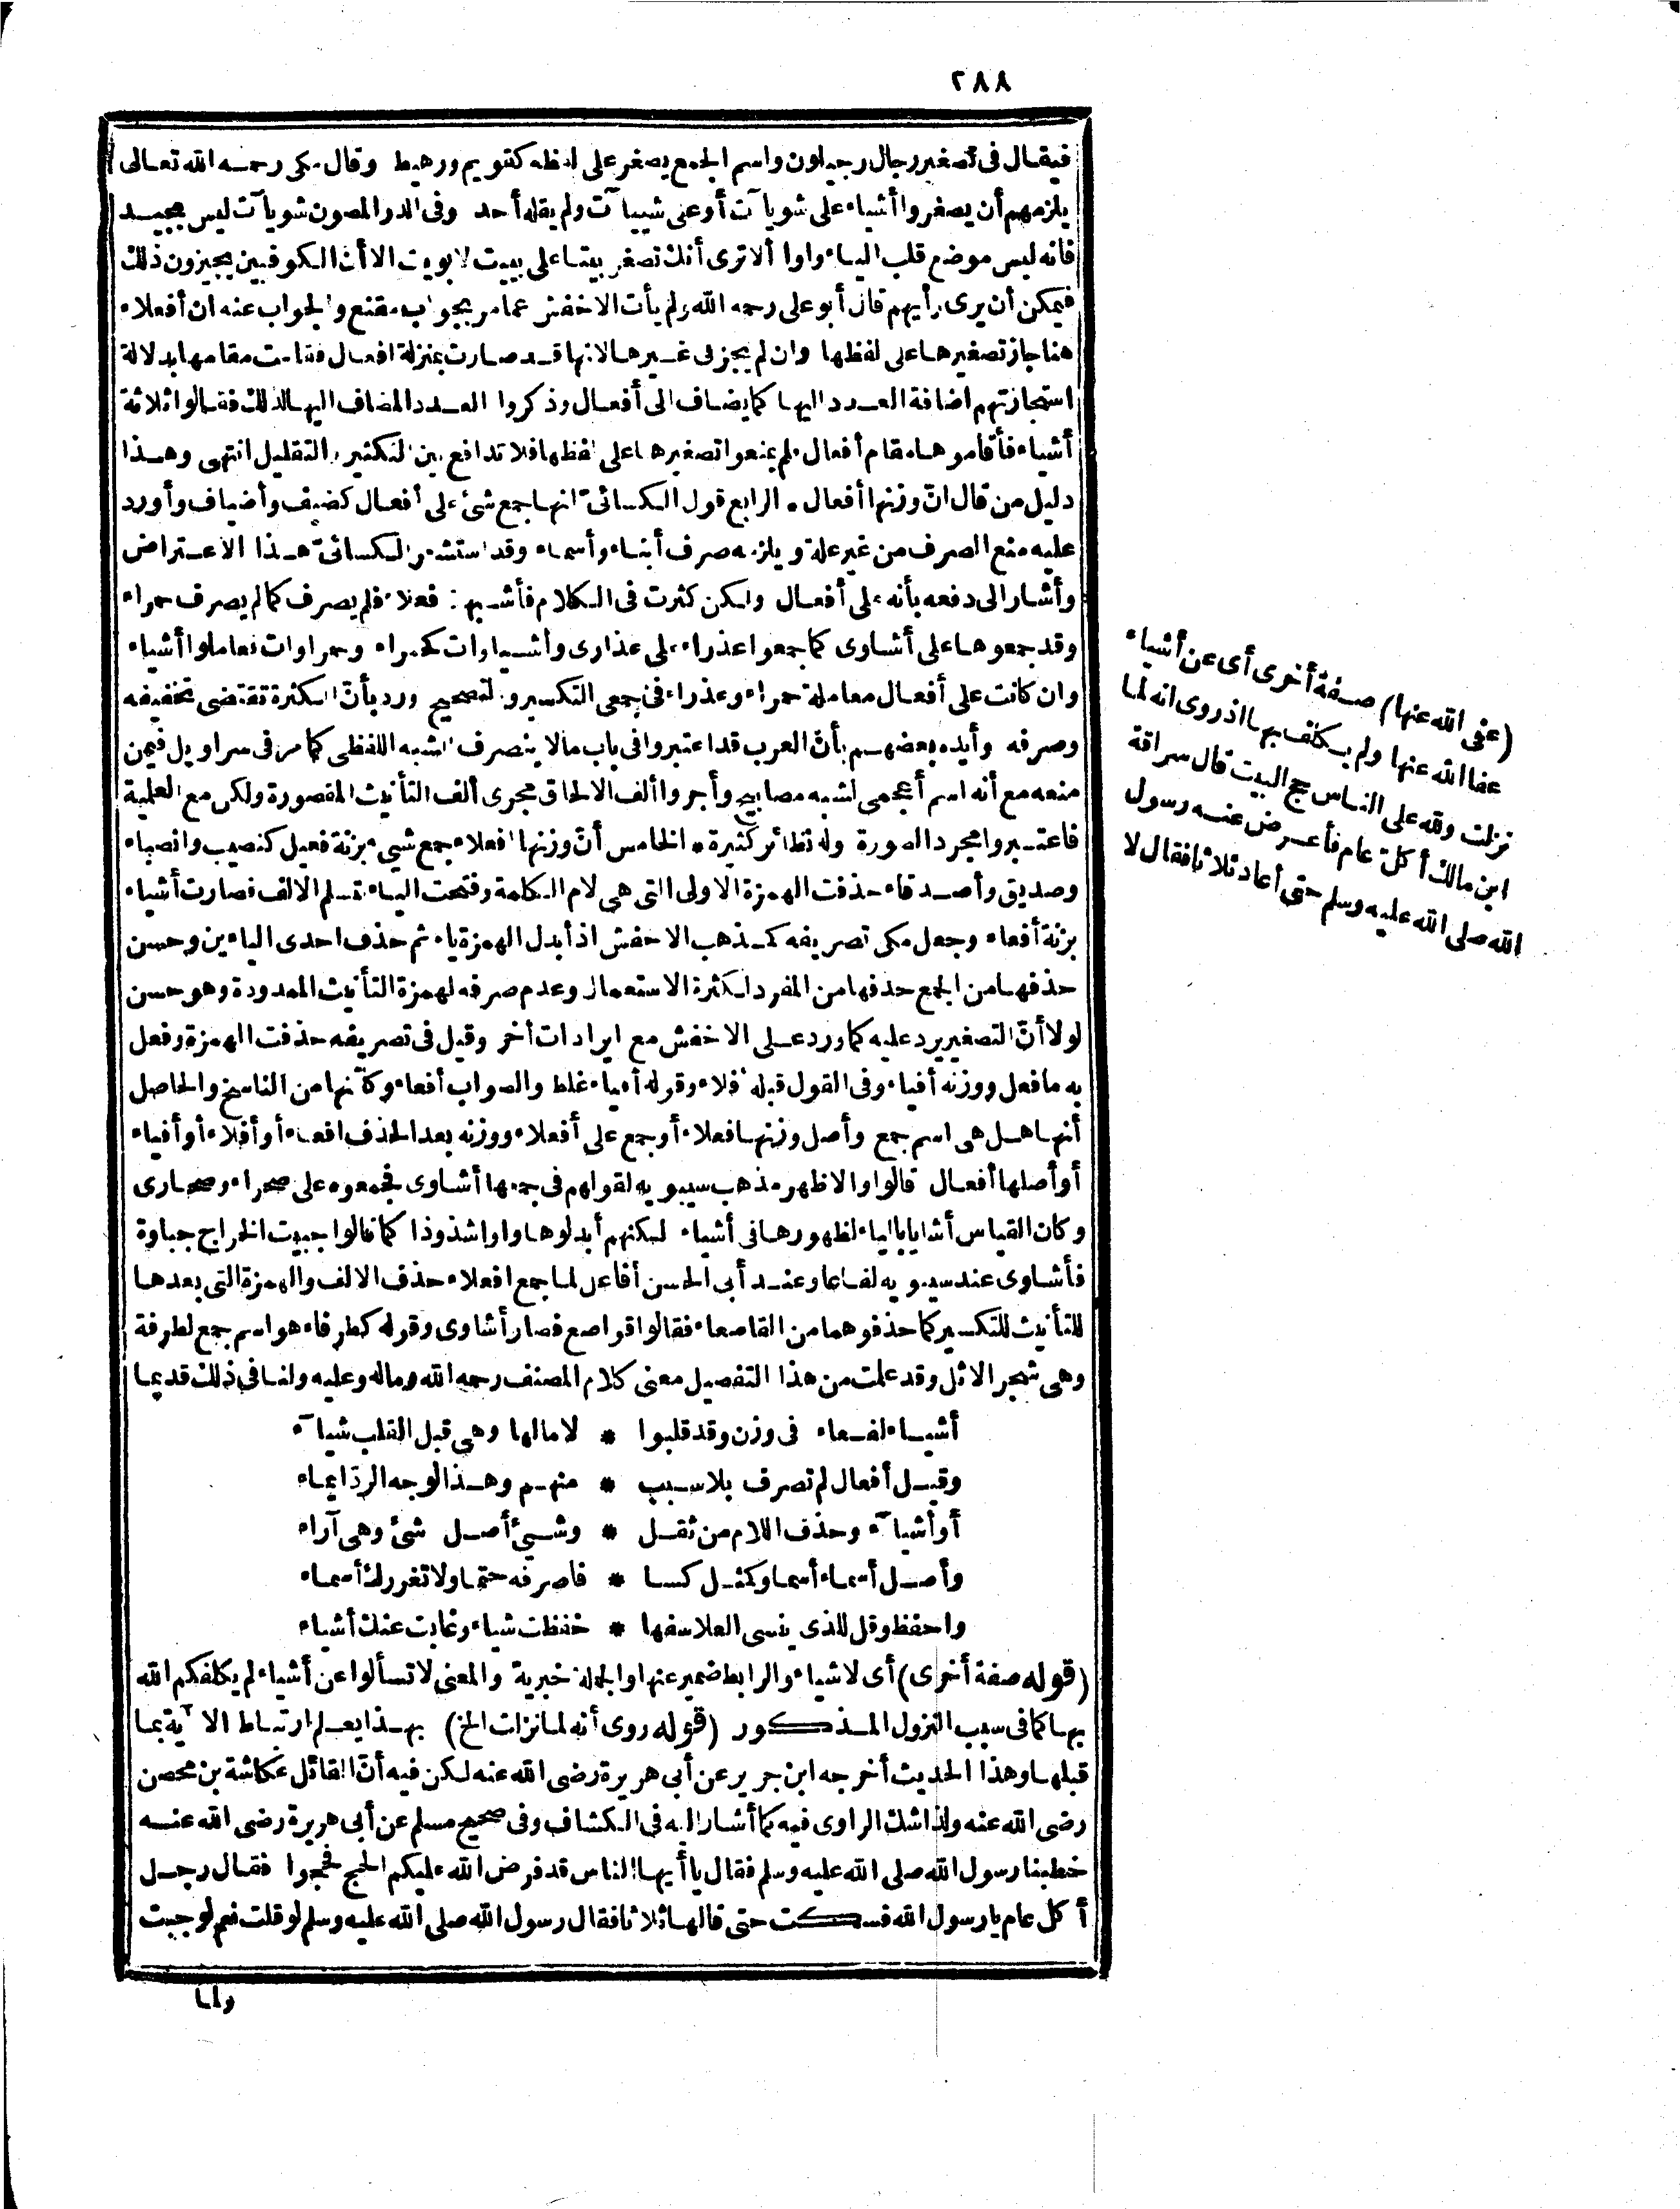 ٢٨٨
فيقال فى تصغير رجال رجيلون واسم الجمع يصغر على لفظه كقويم ورهيط وقال مكى رحمه الله تعالى
يلزمهم أن يصغروا أشياء على شويآت أو على شييآت ولم يقله أحد وفى الدر المصون شويآت ليس بجيد
فانه ليس موضع قلب الياء واوا ألا ترى أنك تصغر بيتا على بييت لا بويت الا أن الكوفيين يجيزون ذلك
فيمكن أن يرى رأيهم قال أبو على رحمه الله ولم يأت الاخفش عما مر بجواب مقنع والجواب عنه ان أفعلاء
هنا جاز تصغيرها على لفظها وان لم يجز فى غيرها لانها قد صارت بمنزلة افعال فقامت مقامها بدلالة
استجازتهم اضافة العدد اليها كما يضاف الى أفعال وذكروا العدد المضاف اليها لذلك فقالوا ثلاثة
أشياء فأقاموها مقام أفعال ولم يمنعوا تصغيرها على لفظها فلا تدافع بين التكثير والتقليل انتهى وهذا
دليل من قال انّ وزنها أفعال * الرابع قول الكسائىّ انها جمع شئ على أفعال كضيف وأضياف وأورد
عليه منع الصرف من غير علة ويلزمه صرف أبناء وأسماء وقد استشعر الكسائىّ هذا الاعتراض
وأشار الى دفعه بأنه على أفعال ولكن كثرت فى الكلام فأشبهت فعلاء فلم يصرف كما لم يصرف حمراء
وقد جمعوها على أشاوى كما جمعوا عذراء على عذارى وأشياوات كحمراء وحمراوات فعاملوا أشياء
وان كانت على أفعال معاملة حمراء وعذراء فى جمعى التكسير والتصحيح وردّ بأنّ الكثرة تقتضى تخفيفه
وصرفه وأيده بعضهم بأنّ العرب قد اعتبروا فى باب ما لا ينصرف الشبه اللفظى كما مر فى سراويل فيمن
منعه مع أنه اسم أعجمى لشبه مصابيح وأجروا ألف الالحاق مجرى ألف التأنيث المقصورة ولكن مع العلمية
فاعتبروا مجرد الصورة وله نظائر كثيرة * الخامس أنّ وزنها افعلاء جمع شىء بزنة فعيل كنصيب وانصباء
وصديق وأصدقاء حذفت الهمزة الاولى التى هى لام الكلمة وفتحت الياء لتسلم الالف فصارت أشياء
بزنة أفعاء وجعل مكى تصريفه كمذهب الاخفش اذ أبدل الهمزة ياء ثم حذف احدى الياءين وحسن
حذفها من الجمع حذفها من المفرد لكثرة الاستعمال وعدم صرفه لهمزة التأنيث الممدودة وهو حسن
لولا أنّ التصغير يرد عليه كما ورد على الاخفش مع ايرادات أخر وقيل فى تصريفه حذفت الهمزة وفعل
به ما فعل ووزنه أفياء وفى القول قبله أفلاء وقوله أفياء غلط والصواب أفعاء وكأنها من الناسخ والحاصل
أنها هل هى اسم جمع وأصل وزنها فعلاء أو جمع على أفعلاء ووزنه بعد الحذف افعاء أو أفلاء أو أفياء
أو أصلها أفعال قالوا والاظهر مذهب سيبويه لقولهم فى جمعها أشاوى فجمعوه على صحراء وصحارى
وكان القياس أشايا بالياء لظهورها فى أشياء لكنهم أبدلوها واوا شذوذا كما قالوا جبيت الخراج جباوة
فأشاوى عند سيبويه لفاعا وعند أبى الحسن أفاعل لما جمع افعلاء حذف الالف والهمزة التى بعدها
للتأنيث للتكسير كما حذفوهما من القاصعاء فقالوا قواصع فصار أشاوى وقوله كطرفاء هو اسم جمع لطرفة
وهى شجر الاثل وقد علمت من هذا التفصيل معنى كلام المصنف رحمه الله وماله وعليه ولنا فى ذلك قديما
أشياء لفعاء فى وزن وقد قلبوا * لاما لها وهى قبل القلب شيآء
وقيل أفعال لم تصرف بلا سبب * منهم وهذا لوجه الردّ ايماء
أو أشيآء وحذف اللام من ثقل * وشىء أصل شئ وهى آراء
وأصل أسماء أسماو كمثل كسا * فاصرفه حتما ولا تغررك أسماء
واحفظ وقل للذى ينسى العلا سفها * حفظت شيأ وغابت عنك أشياء
(قوله صفة أخرى) أى لاشياء والرابط ضمير عنها والجملة خبرية والمعنى لا تسألوا عن أشياء لم يكلفكم الله
بها كما فى سبب النزول المذكور (قوله روى أنه لما نزلت الخ) بهذا يعلم ارتباط الآية بما
قبلها وهذا الحديث أخرجه ابن جرير عن أبى هريرة رضى الله عنه لكن فيه أنّ القائل عكاشة بن محصن
رضى الله عنه ولذا شك الراوى فيه كما أشار اليه فى الكشاف وفى صحيح مسلم عن أبى هريرة رضى الله عنه
خطبنا رسول الله صلى الله عليه وسلم فقال يا أيها الناس قد فرض الله عليكم الحج فحجوا فقال رجل
أكل عام يا رسول الله فسكت حتى قالها ثلاثا فقال رسول الله صلى الله عليه وسلم لو قلت نعم لوجبت
ولما
(عفى الله عنها) صفة أخرى أى عن أشياء
عفا الله عنها ولم يكلف بها اذ روى انه لما
نزلت ولله على الناس حج البيت قال سراقة
ابن مالك أكلّ عام فأعرض عنه رسول
الله صلى الله عليه وسلم حتى أعاد ثلاثا فقال لا